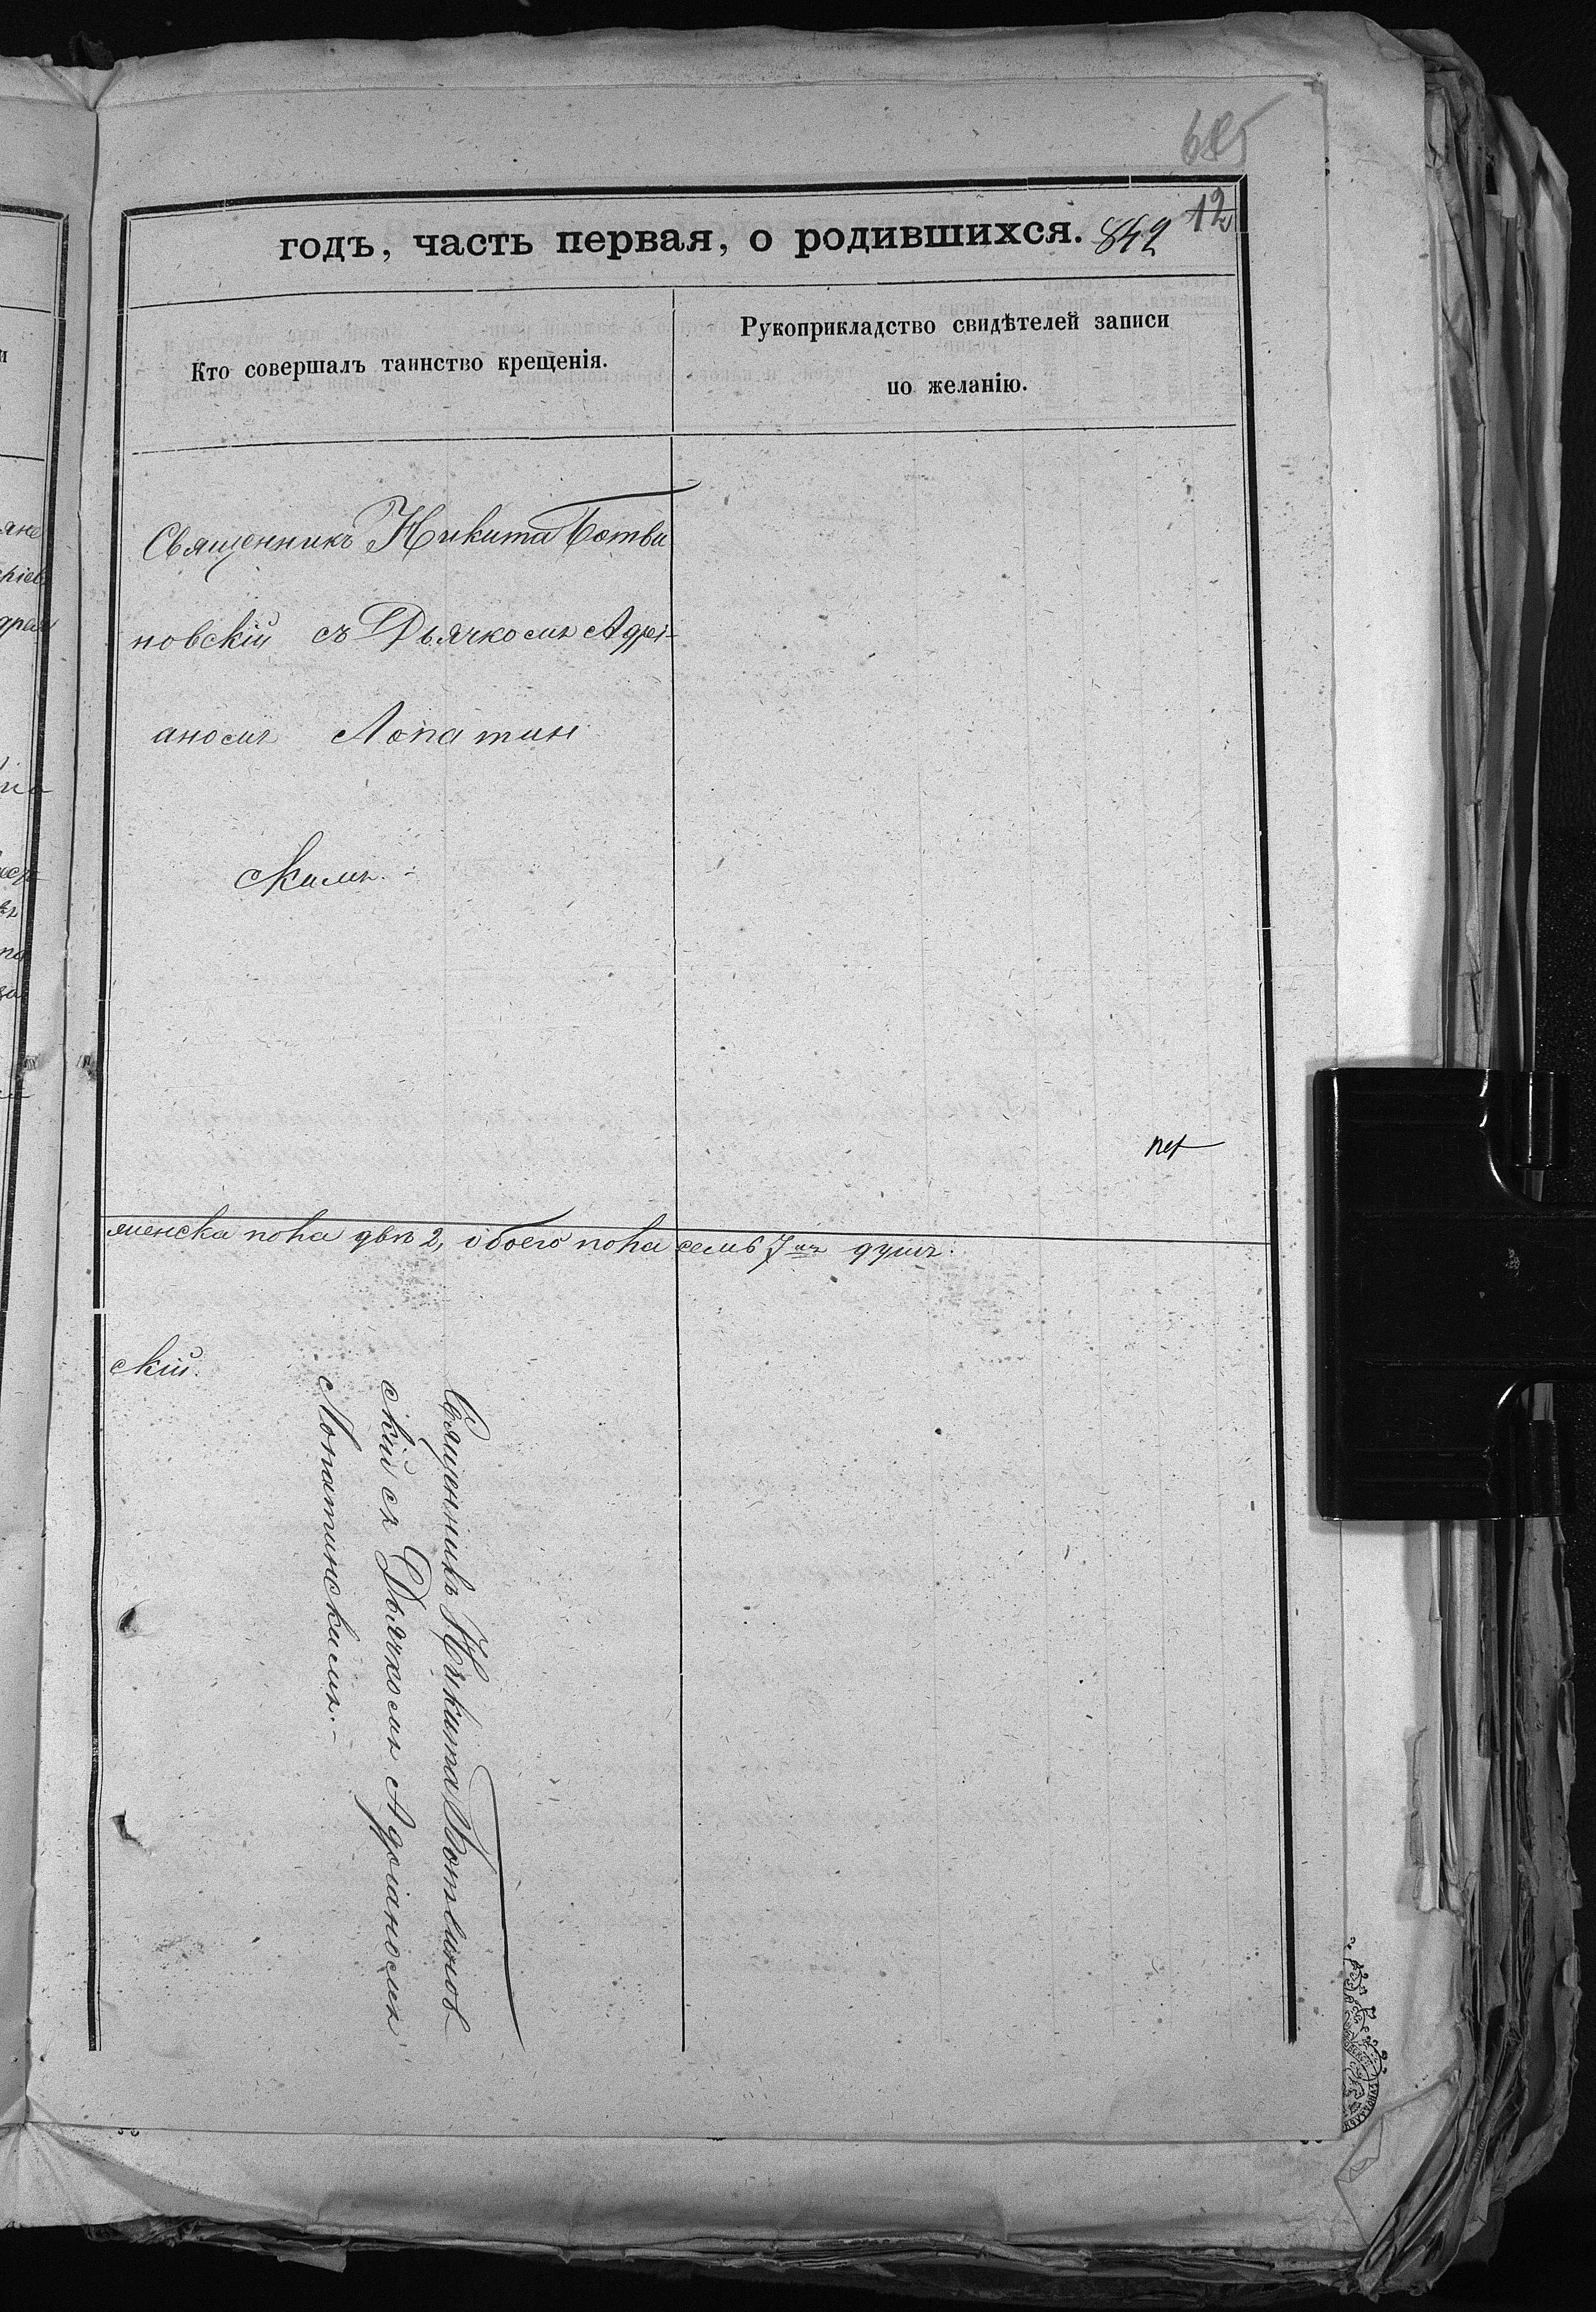 годъ, часть первая, о родившихся. 842 12
Кто совершалъ таинство крещенія.
Рукоприкладство свидѣтелей записи
по желанію.
Священникъ Никита Ботви
новскій съ Дьячкомъ Адрі-
аномъ Лопатин
скимъ.-
женска пола двѣ 2, обоего пола семь 7мъ душъ.
скій.
Священникъ Никита Ботвинов
скій съ Дьячкомъ Адріаномъ
Лопатинскимъ.-